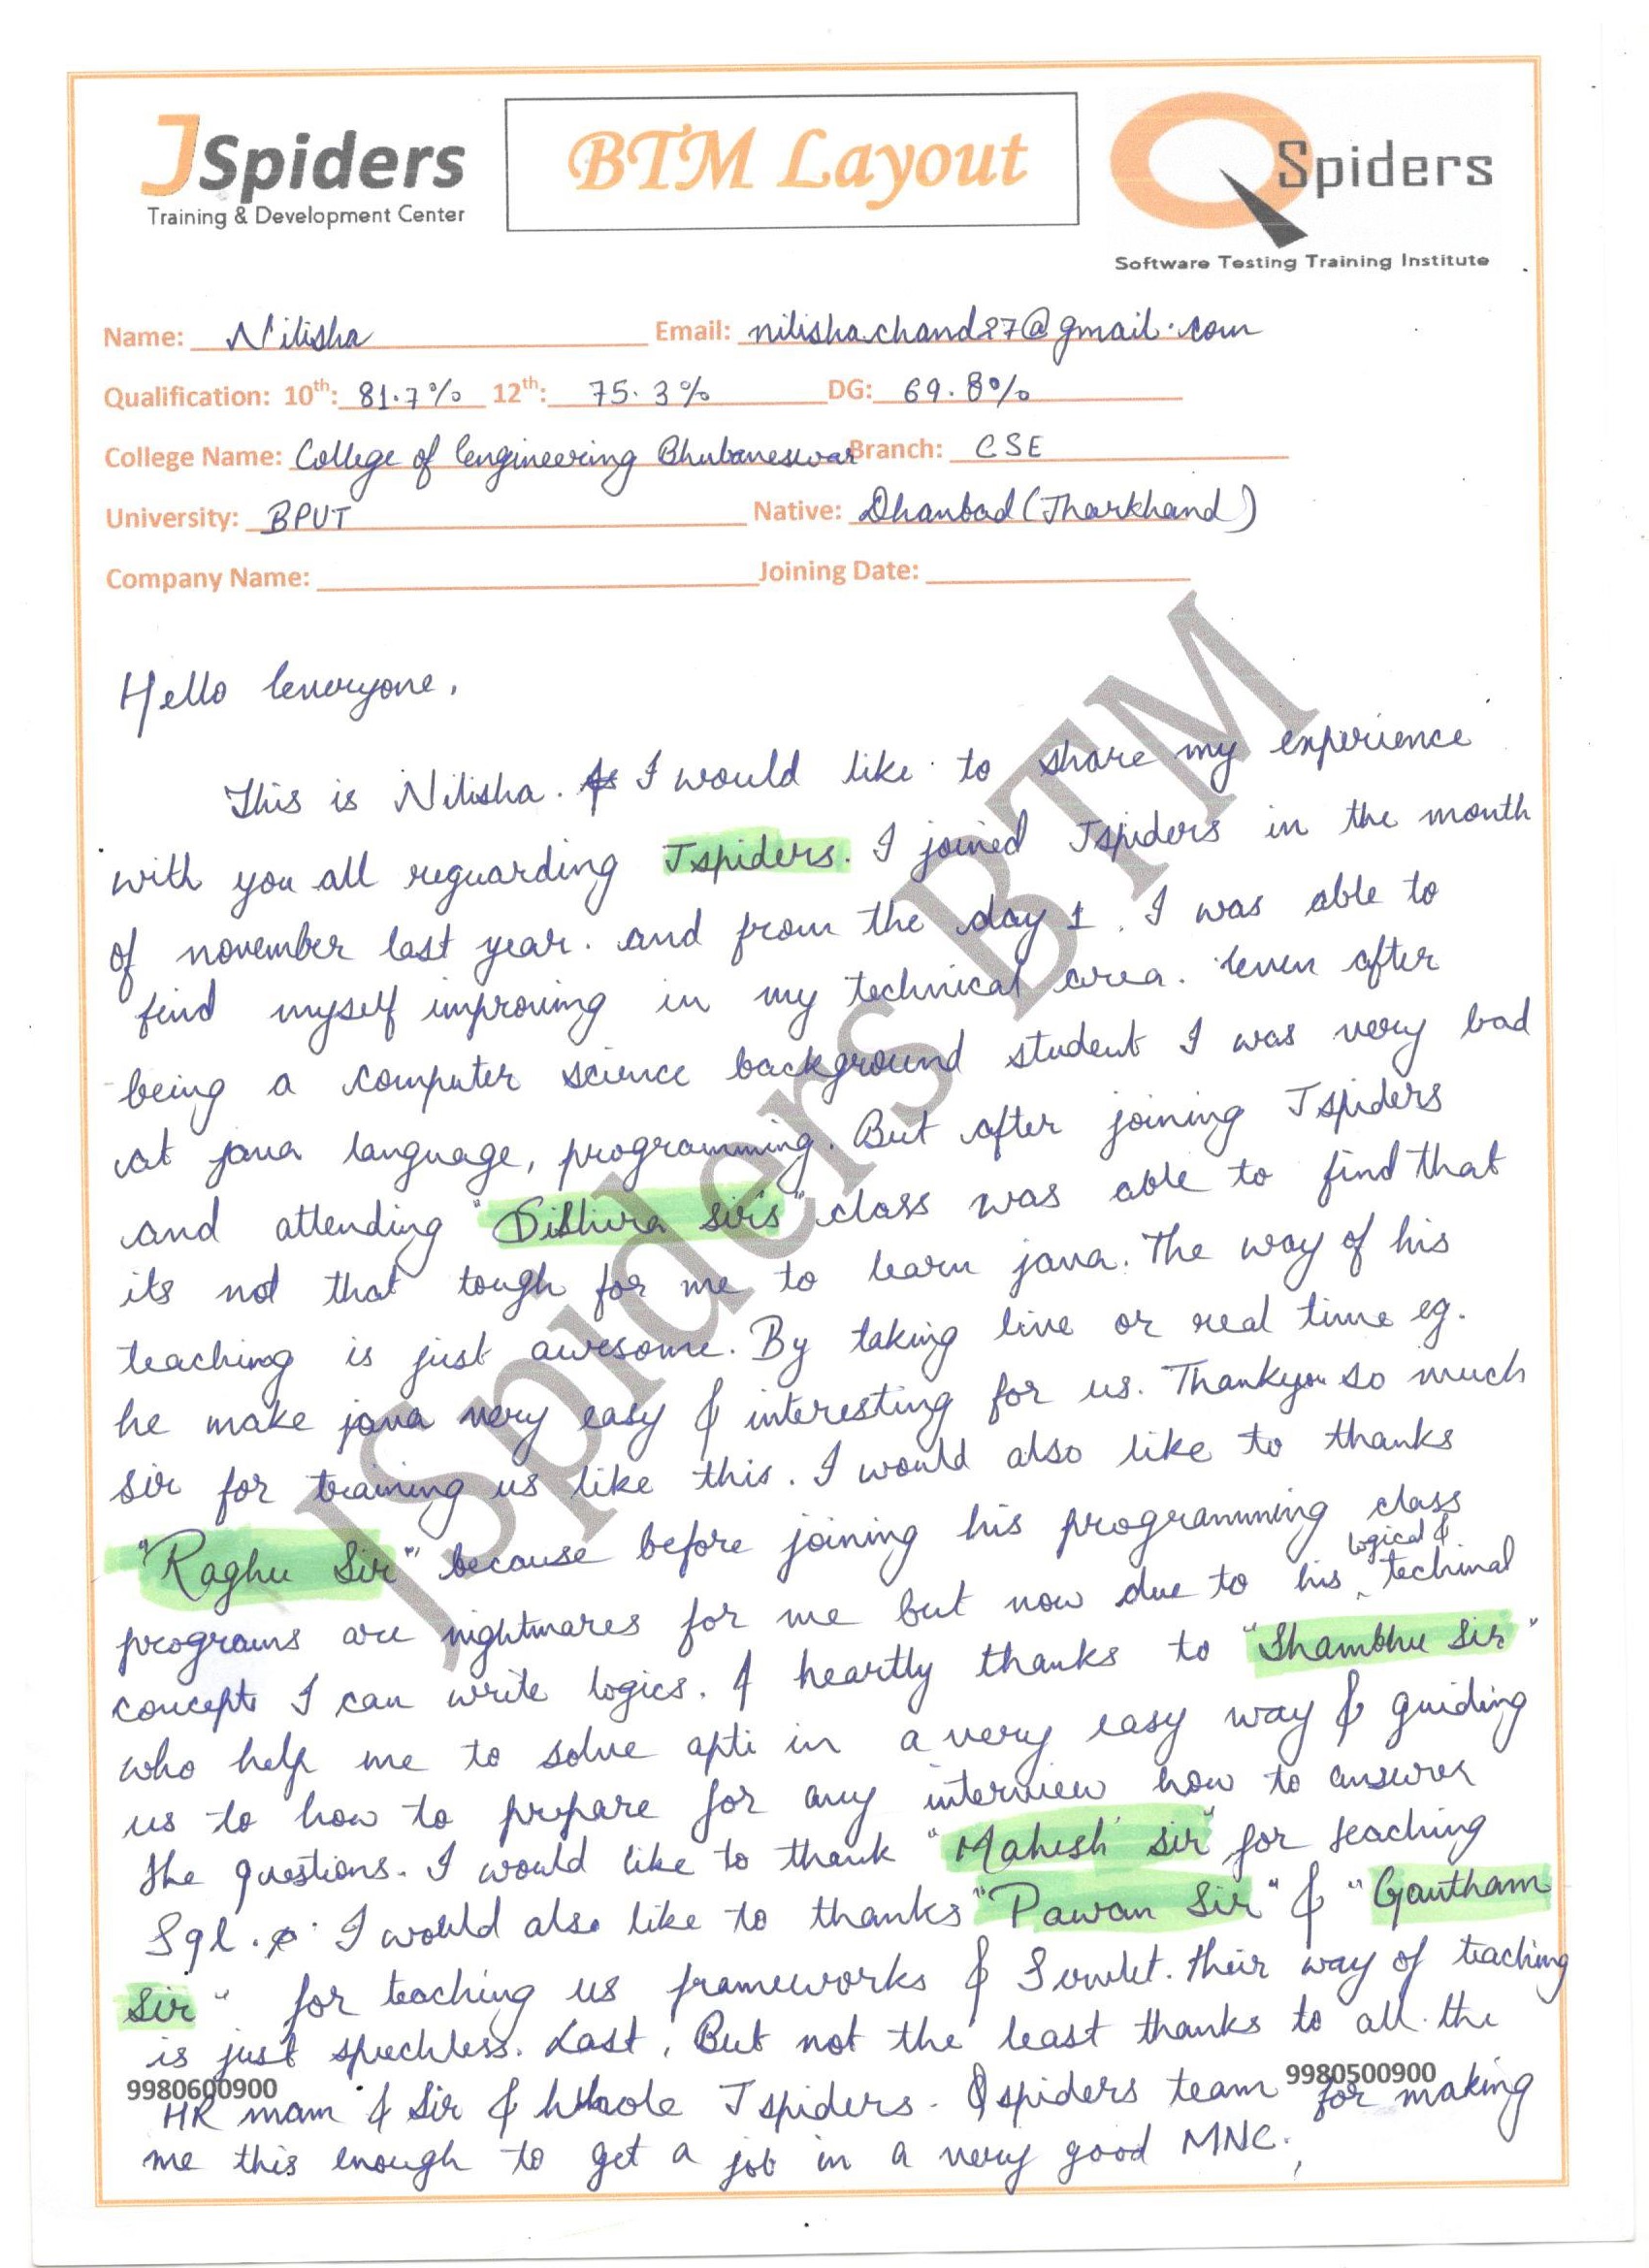 JSpiders
Training & Development Center
BTM Layout
QSpiders
Software Testing Training Institute
Name: Nilisha Email: nilisha.chand27@gmail.com
Qualification: 10th: 81.7% 12th: 75.3% DG: 69.8%
College Name: College of Engineering Bhubaneswar Branch: CSE
University: BPUT Native: Dhanbad (Jharkhand)
Company Name: Joining Date:
Hello Everyone,
This is Nilisha. I would like to share my experience
with you all reguarding Jspiders. I joined Jspiders in the month
of november last year. and from the day 1, I was able to
find myself improving in my technical area. Even after
being a computer science background student I was very bad
at java language, programming. But after joining Jspiders
and attending "Dithira sir's" class was able to find that
its not that tough for me to learn java. The way of his
teaching is just awesome. By taking live or real time eg.
he make java very easy & interesting for us. Thankyou so much
sir for training us like this. I would also like to thanks
"Raghu Sir" because before joining his programming class
programs are nightmares for me but now due to his logical & techinal
concepts I can write logics. A heartly thanks to "Shambhu Sir"
who help me to solve apti in a very easy way & guiding
us to how to prepare for any interview how to answer
the questions. I would like to thank "Mahesh sir" for teaching
Sql. I would also like to thanks "Pawan Sir" & "Gautham
Sir" for teaching us frameworks & Servlet. their way of teaching
is just speechless. Last, But not the least thanks to all the
9980600900 9980500900
HR mam & Sir & whole Jspiders - Qspiders team for making
me this enough to get a job in a very good MNC.
JSpiders BTM